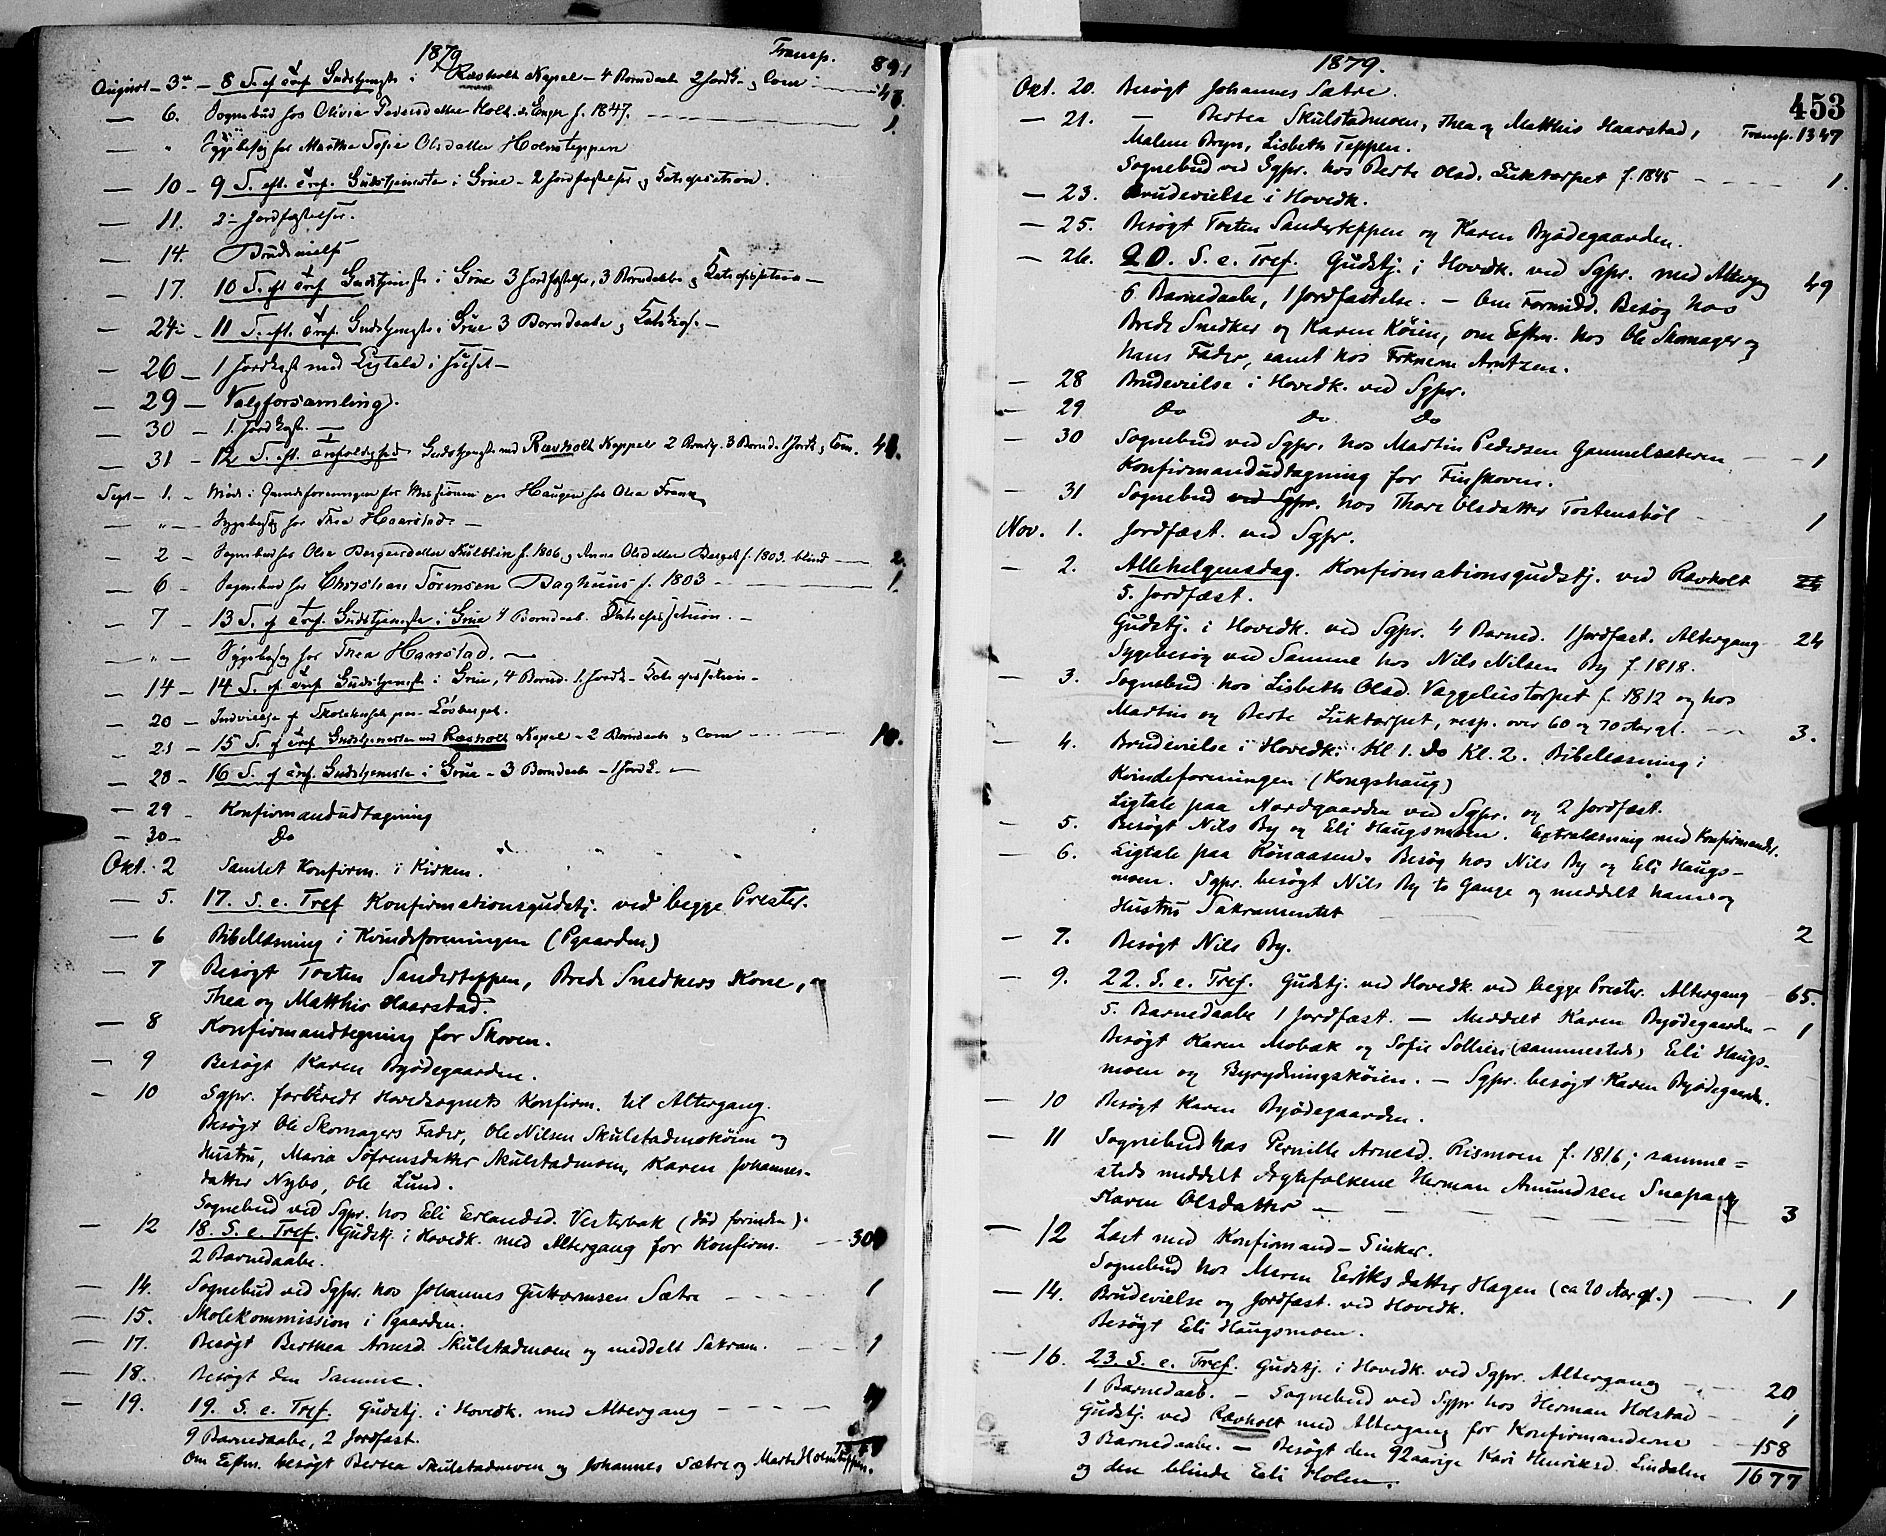 1879 Transp. 891
August – 3die – 8 S. ef. Tref. Gudstjeneste i Rævholt Kapel – 4 Barnedaabe 2 Jordf. & Com
— 6. Sognebud hos Olivia Pedersdatter Holt f. 1847. 1.
— " Sygebesøg hos Marthe Sofie Olsdatter Holmsteppen
— 10 – 9 S. eft. Tref. Gudstjeneste i Grue – 2 Jordfæstelser & Katekisation.
— 11. 2 Jordfæstelser.
— 14. Brudevielse
— 17. 10 S. eft Tref Gudstjeneste i Grue 3 Jordfæstelser, 3 Barnedaabe & Katekisation –
— 24 – 11 S. eft. Tref. Gudstjeneste i Grue 3 Barnedaabe & Katekis. –
— 26 – 1 Jordfæst med Ligtale i Huset –
— 29 – Valgforsamling.
— 30 – 1. Jordfæst. —
— 31 – 12 S. eft. Trefoldighed Gudstjeneste ved Rævholt Kappel 2 3 Barned. 1 Jordf. & Com. 41.
Sept – 1. – Møde i Qvindeforeningen for Missionen paa Haugen hos Olia Frank
— " – Sygebesøg hos Thea Haarstad. —
— 2 – Sognebud hos Olia f. 1806, & Anne Olsdatter Berget f. 1803. blind — 2.
— 6 – Sognebud hos Christian Sørensen Baghuus f. 1803 – 1.
— 7 – 13 S. ef Tref. Gudstjeneste i Grue 4 Barnedaab. Katekisation. –
— " – Sygebesøg hos Thea Haarstad. —
— 14 – 14 S. ef. Tref Gudstjeneste i Grue, 4 Barned. 1. Jordf. – Katekisation –
— 20 – Indvielse af Skolehuset paa Løvberget.
— 21 – 15 S. ef Tref Gudstjeneste ved Rævholt Kapel – 2 Barnedaabe & Com 10.
— 28 – 16 S. ef Tref. Gudstjeneste i Grue – 3 Barnedaabe – 1 Jordf. —
— 29 – Konfirmandudtagning
— 30 – Do
Okt. 2 Samlet Konfirm. i Kirken.
— 5. 17. S. e. Tref Konfirmationsgudstj. ved begge Prester.
— 6 Bibellæsning i Kvindeforeningen (Pgaarden)
— 7 Besøgt Tosten Sanderteppen, Brede Snedkers Kone,
Thea og Matthis Haarstad.
— 8 Konfirmandtegning for Skoven.
— 9 Besøgt Karen Byødegaarden.
— 10 Sgpr. forberedt Hovedsognets Konfirm. til Altergang.
Besøgt Ole Skomagers Fader, Ole Nilsen Skulstadmokøien og
Hustru, Maria Søfrensdatter Skulstadmoen, Karen Johannes-
datter Nybo, Ole Lund.
Sognebud ved Sgpr. hos Eli Erlandsd. Vesterbak (død forinden).
— 12 18. S. e. Tref. Gudstj. i Hovedk. med Altergang for Konfirm.
2 Barnedaabe.
— 14. Sognebud ved Sgpr. hos Johannes Guttormsen Sætre 1
— 15. Skolekommission i Pgaarden.
— 17. Besøgt Berthea Arnesd. Skulstadmoen og meddelt Sakram. 1
— 18. Besøgt den Samme.
— 19. 19. S. e. Tref. Gudstj. i Hovedk. med Altergang
9 Barnedaabe, 2 Jordfæst.
Om Eftm. besøgt Bertea Skulstadmoen og Johannes Sætre og Marte Holmsteppen.
1879.
453
Okt. 20. Besøgt Johannes Sætre.
— 21. — Bertea Skulstadmoen, Thea og Matthis Haarstad, Transp. 1347
Malene Bryn, Lisbeth Teppen.
Sognebud ved Sgpr. hos Berte Olsd. Luktorpet f. 1845 1.
— 23. Brudevielse i Hovedk.
— 25. Besøgt Tosten Sanderteppen og Karen Byødegaarden.
— 26. 20. S. e. Tref. Gudstj. i Hovedk. ved Sgpr. med Alterg 49
6 Barnedaabe, 1 Jordfæstelse. – Om Formidd. Besøg hos
Brede Snedker og Karen Køien, om Eftm. hos Ole Skomager og
hans Fader, samt hos Frknerne Arntzen.
— 28 Brudevielse i Hovedk. ved Sgpr.
— 29 Do Do Do
— 30 Sognebud ved Sgpr. hos Martin Pedersen Gammelsæteren 1
Konfirmandudtagning for Finskoven.
— 31 Sognebud ved Sgpr. hos Thore Olsdatter Tostensbøl 1
Nov. 1. Jordfæst. ved Sgpr.
— 2. Allehelgensdag. Konfirmationsgudstj. ved Rævholt 24
5. Jordfæst.
Gudstj. i Hovedk. ved Sgpr. 4 Barned. 1 Jordfæst. Altergang 24
Sygebesøg ved Samme hos Nils Nilsen By f. 1818.
— 3. Sognebud hos Lisbeth Olsd. Væggeleistorpet f. 1812 og hos
Martin og Berte Luktorpet, resp. over 60 og 70 Aar gl. 3.
— 4. Brudevielse i Hovedk. Kl 1. Do Kl. 2. Bibellæsning i
Kvindeforeningen (Kongshaug)
Ligtale paa Nordgaarden ved Sgpr. og 2 Jordfæst.
— 5. Besøgt Nils By og Eli Haugsmoen. Extralæsning med Konfirmander.
— 6. Ligtale paa Rønaasen. Besøg hos Nils By og Eli Haugs-
moen. Sgpr. besøgt Nils By to Gange og meddelt ham og
Hustru Sakramentet 2
— 7. Besøgt Nils By.
— 9. 22. S. e. Tref. Gudstj. ved Hovedk. ved begge Prester. Altergang 65.
5. Barnedaabe 1 Jordfæst. — Meddelt Karen Byødegaarden – 1
Besøgt Karen Mobak og Sofie Sollien (sammesteds) Eli Haugs-
moen og Byrydningskøien. – Sgpr. besøgt Karen Byødegaarden.
— 10 Besøgt Karen Byødegaarden.
— 11 Sognebud hos Pernille Arnesd. Rismoen f. 1816; samme=
steds meddelt Ægtefolkene Herman Amundsen Snepa og
Karen Olsdatter — 3
— 12 Læst med Konfirmand – Sinker.
Sognebud hos Maren Eeriksdatter Hagen (ca 70 Aar gl.) 1
— 14. Brudevielse og Jordfæst. ved Hovedk.
Besøgt Eli Haugsmoen.
— 16. 23. S. e. Tref. Gudstj. i Hovedk. ved Sgpr. Altergang 20
1 Barnedaab. – Sognebud ved Sgpr hos Herman Holstad 1
Gudstj. ved Rævholt med Altergang for Konfirmanderne 158
3 Barnedaabe. – Besøgt den 92aarige Kari Henriksd. Lindalen
og den blinde Eli Holen. 1677